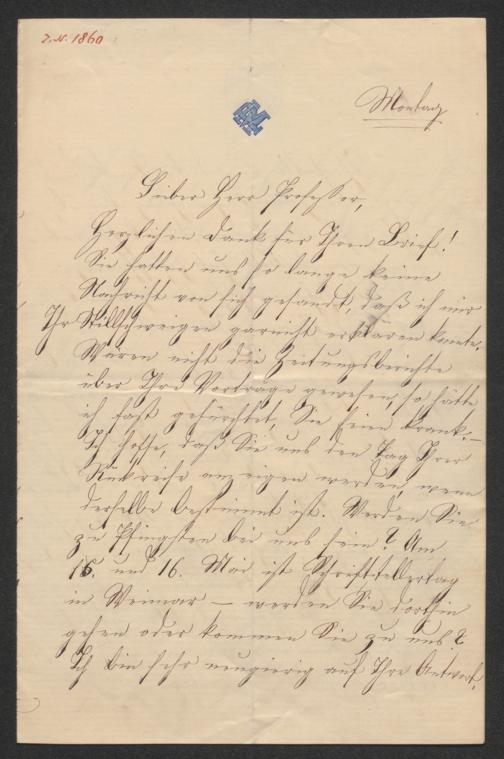 J. N. 1860
Montag
Lieber Herr Professor,
Herzlichen Dank für Ihren Brief!
Sie hatten uns so lange keine
Nachricht von sich gesandt, daß ich mir
Ihr Stillschweigen garnicht erklären konnte.
Wären nicht die Zeitungsberichte
über Ihre Vorträge gewesen, so hätte
ich fast gefürchtet, Sie seien krank. –
Ich hoffe, daß Sie uns den Tag Ihrer
Rükreise anzeigen werden, wenn
derselbe bestimmt ist. Werden Sie
zu Pfingsten bei uns sein? Am
15. und 16. Mai ist Schriftstellertag
in Weimar – werden Sie dorthin
gehen oder kommen Sie zu uns?
Ich bin sehr neugierig auf Ihre Antwort.